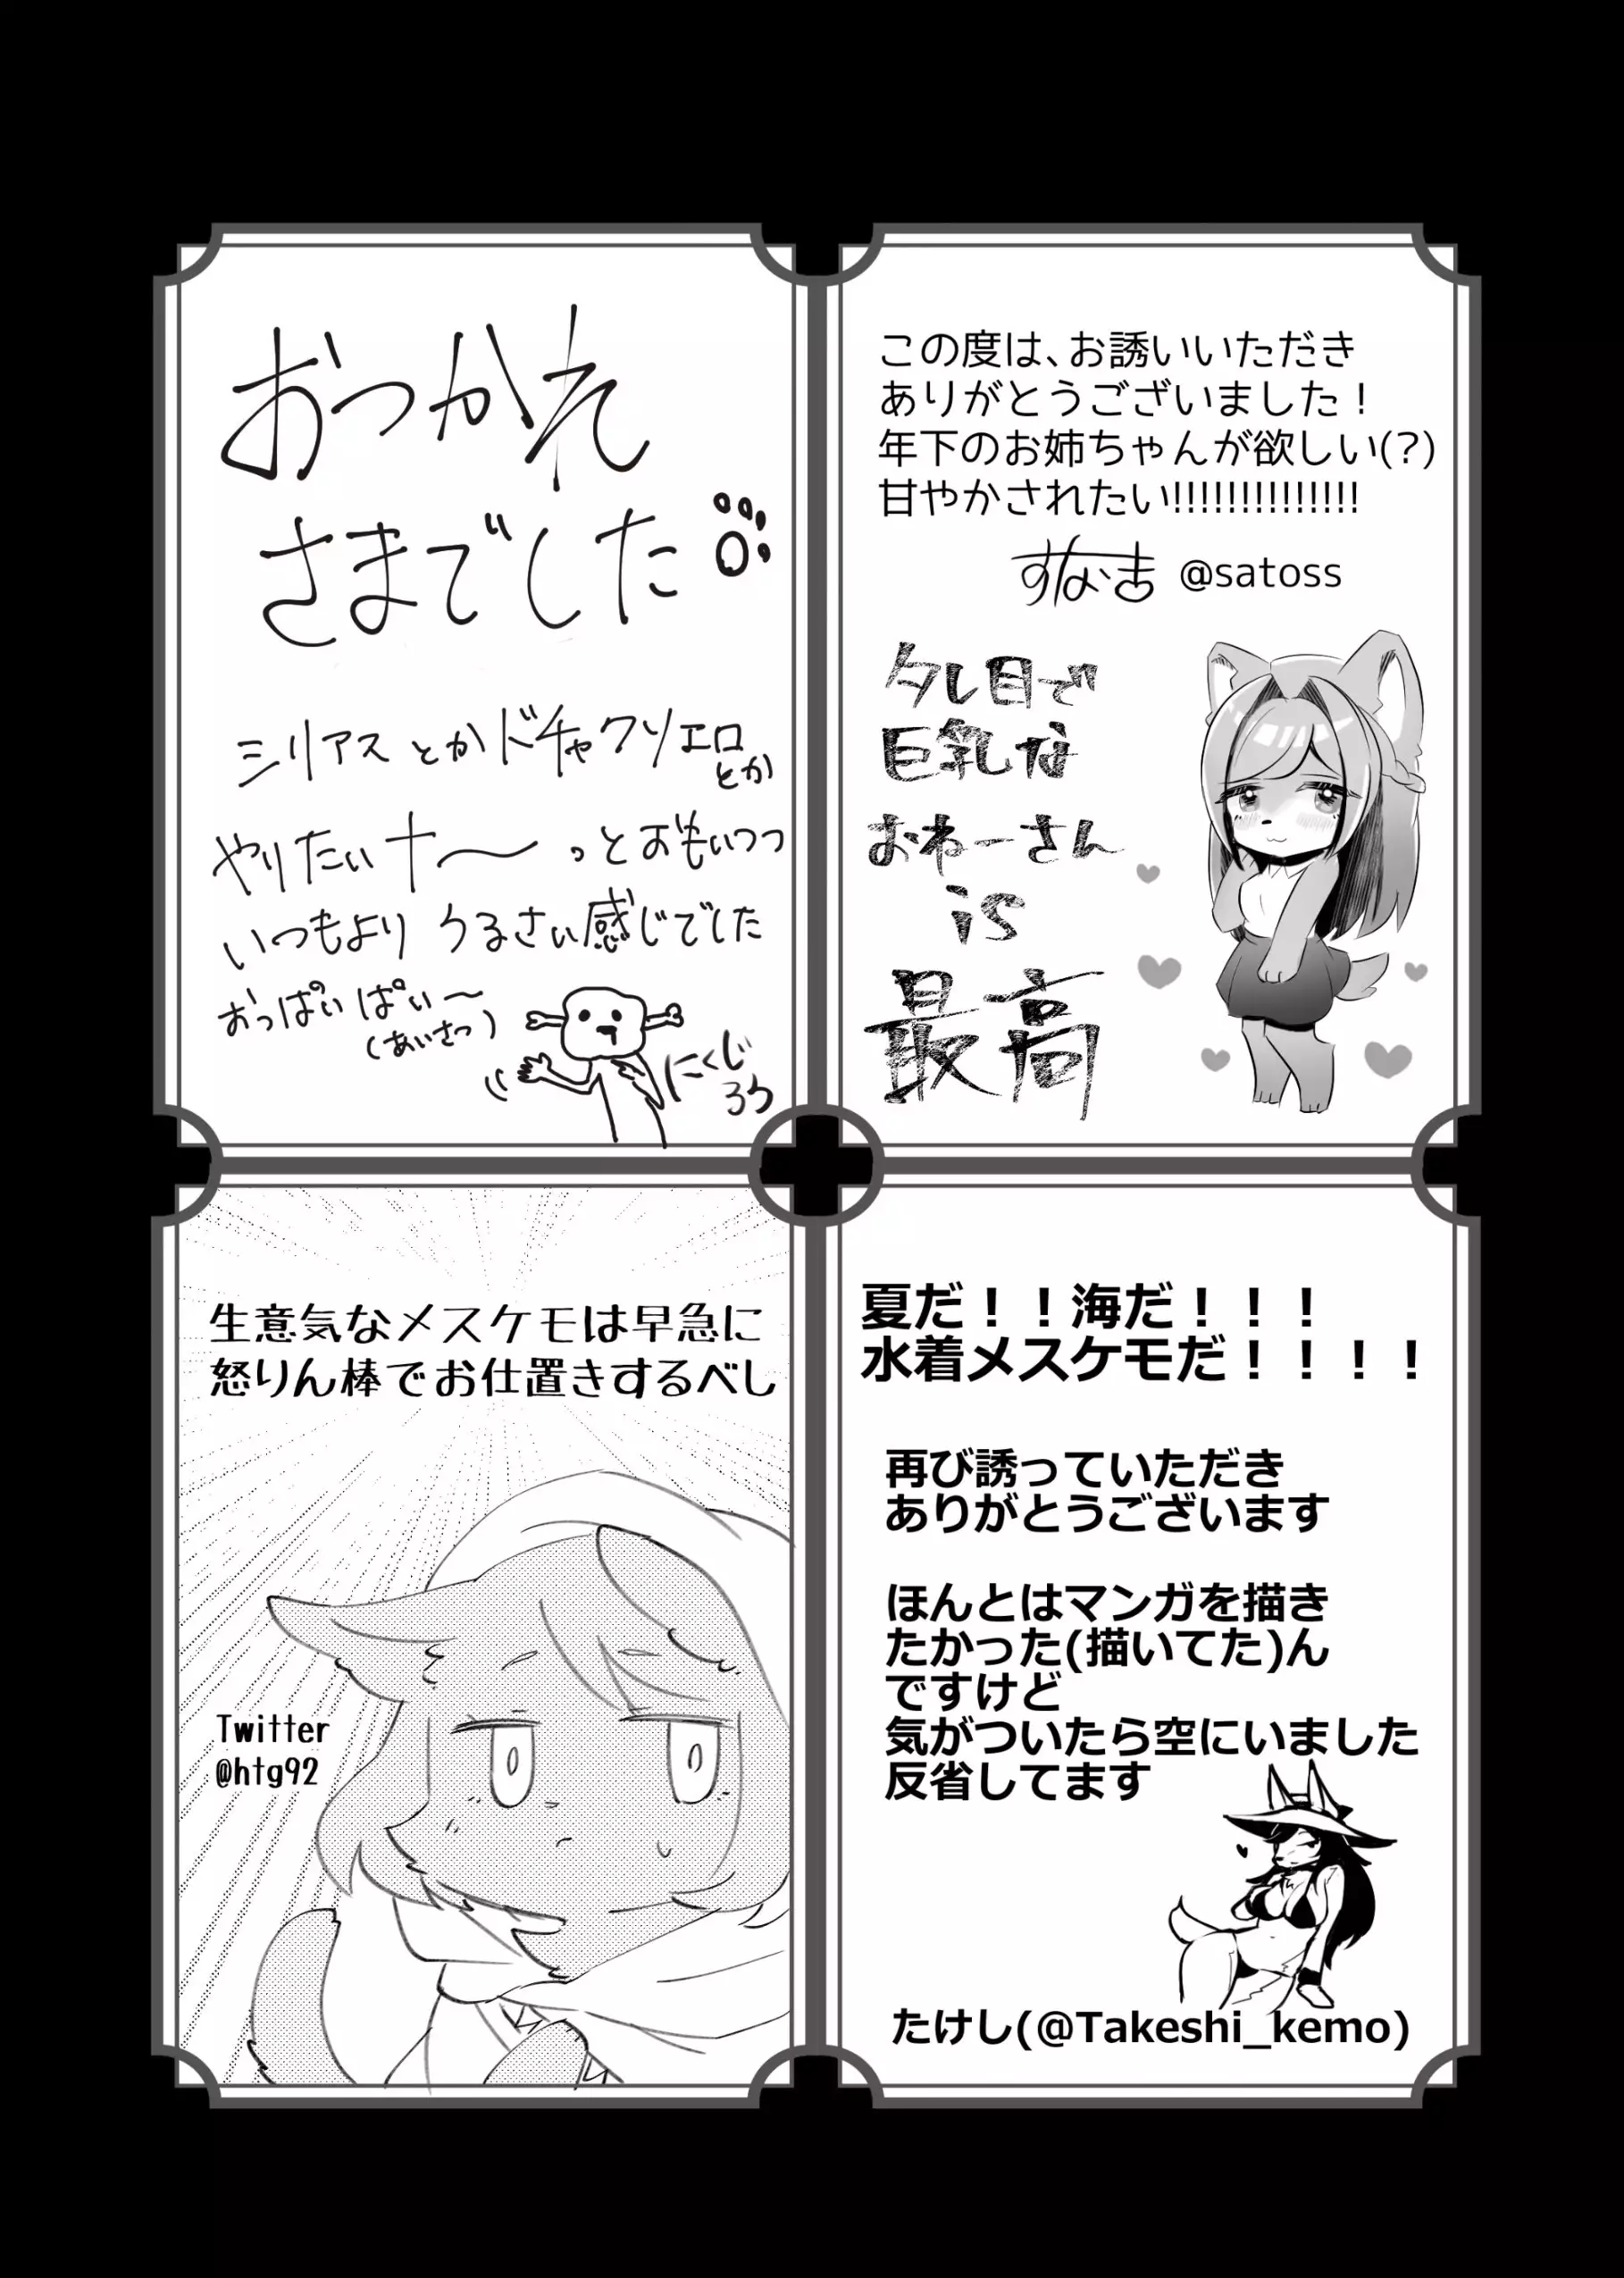 この度は、お誘いいただき
ありがとうございました！
年下のお姉ちゃんが欲しい(?)
甘やかされたい!!!!!!!!!!!!!!
すなま @satoss
タレ目で
巨乳な
おねーさん
is
最高
おつかれ
さまでした
シリアスとかドチャクソエロとか
やりたいナ〜っとおもいつつ
いつもより うるさい感じでした
おっぱいぱい〜
(あいさつ)
にくじ
ろう
夏だ！！海だ！！！
水着メスケモだ！！！！
再び誘っていただき
ありがとうございます
ほんとはマンガを描き
たかった(描いてた)ん
ですけど
気がついたら空にいました
反省してます
たけし(@Takeshi_kemo)
生意気なメスケモは早急に
怒りん棒でお仕置きするべし
Twitter
@htg92